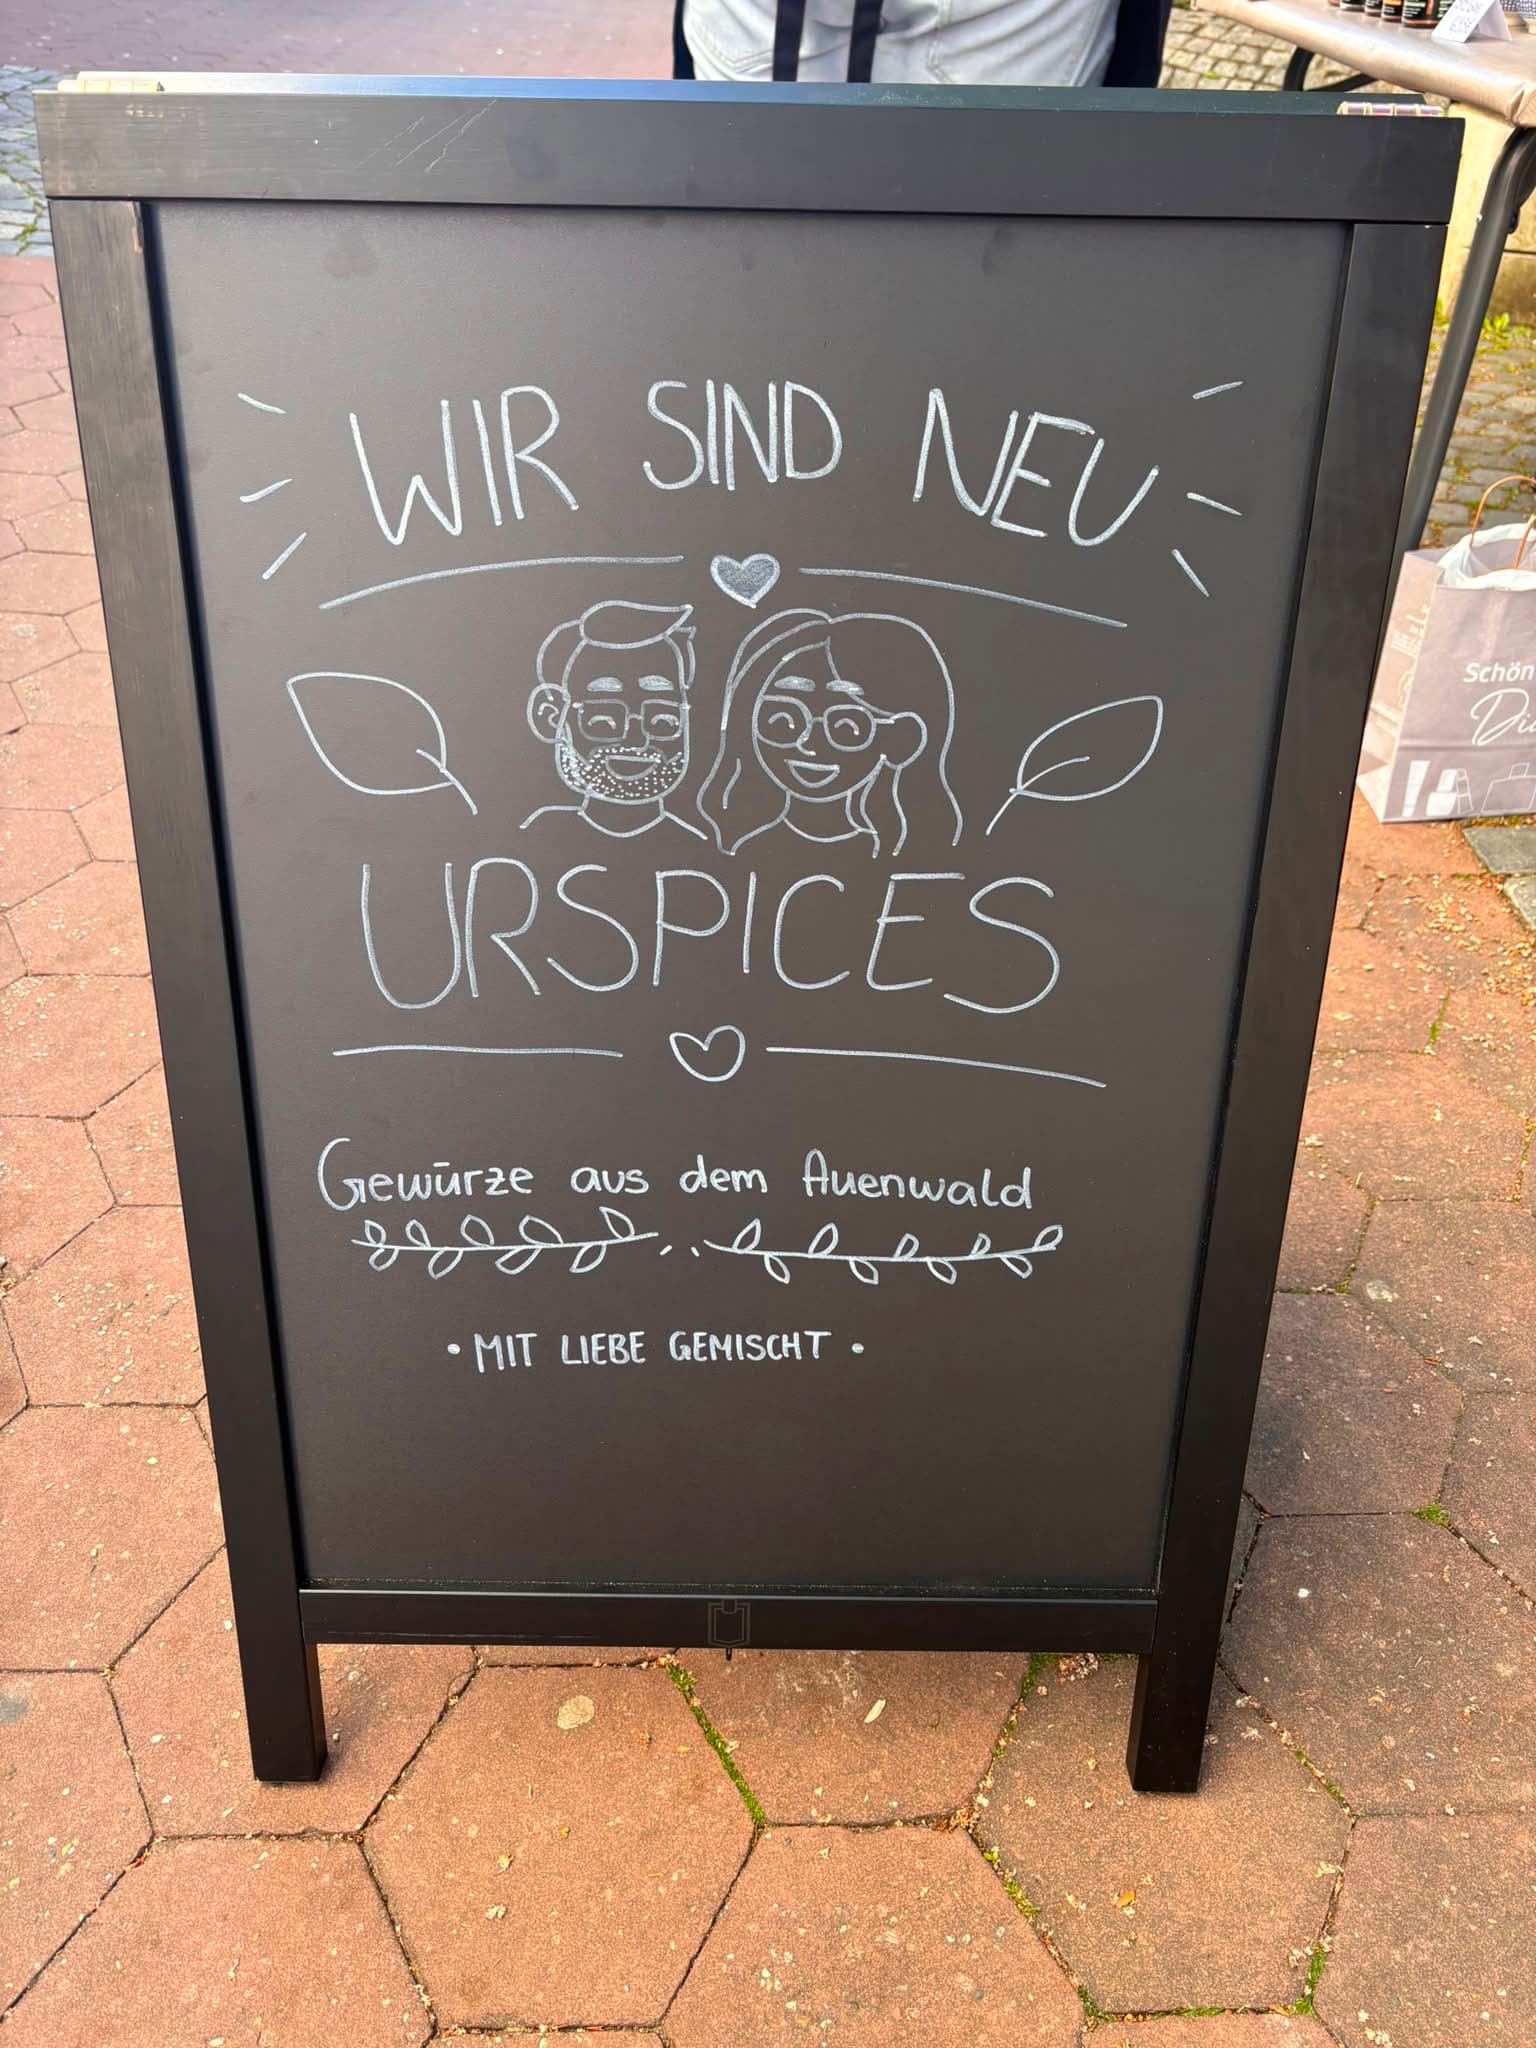 WIR SIND NEU
URSPICES
Gewürze aus dem Auenwald
• MIT LIEBE GEMISCHT •
Schön